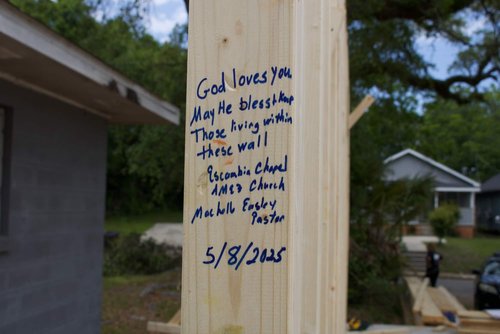 God loves you
May He bless & Keep
Those living within
these wall
Escambia Chapel
AMEZ Church
Machelle Easley
Pastor
5/8/2025